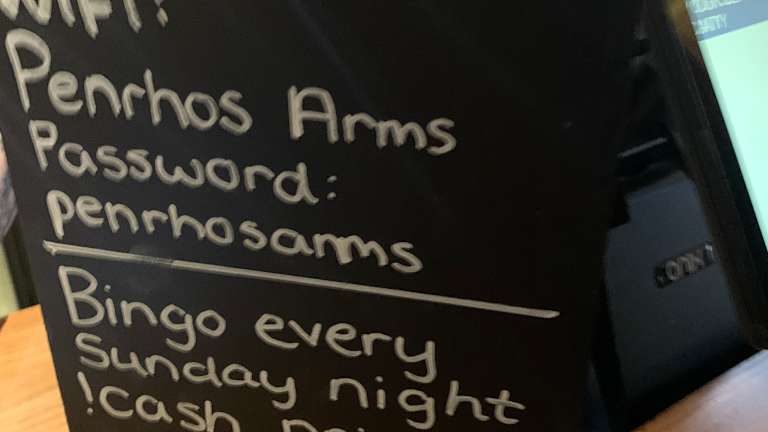 WIFI:
Penrhos Arms
Password:
penrhosarms
Bingo every
Sunday night
!cash